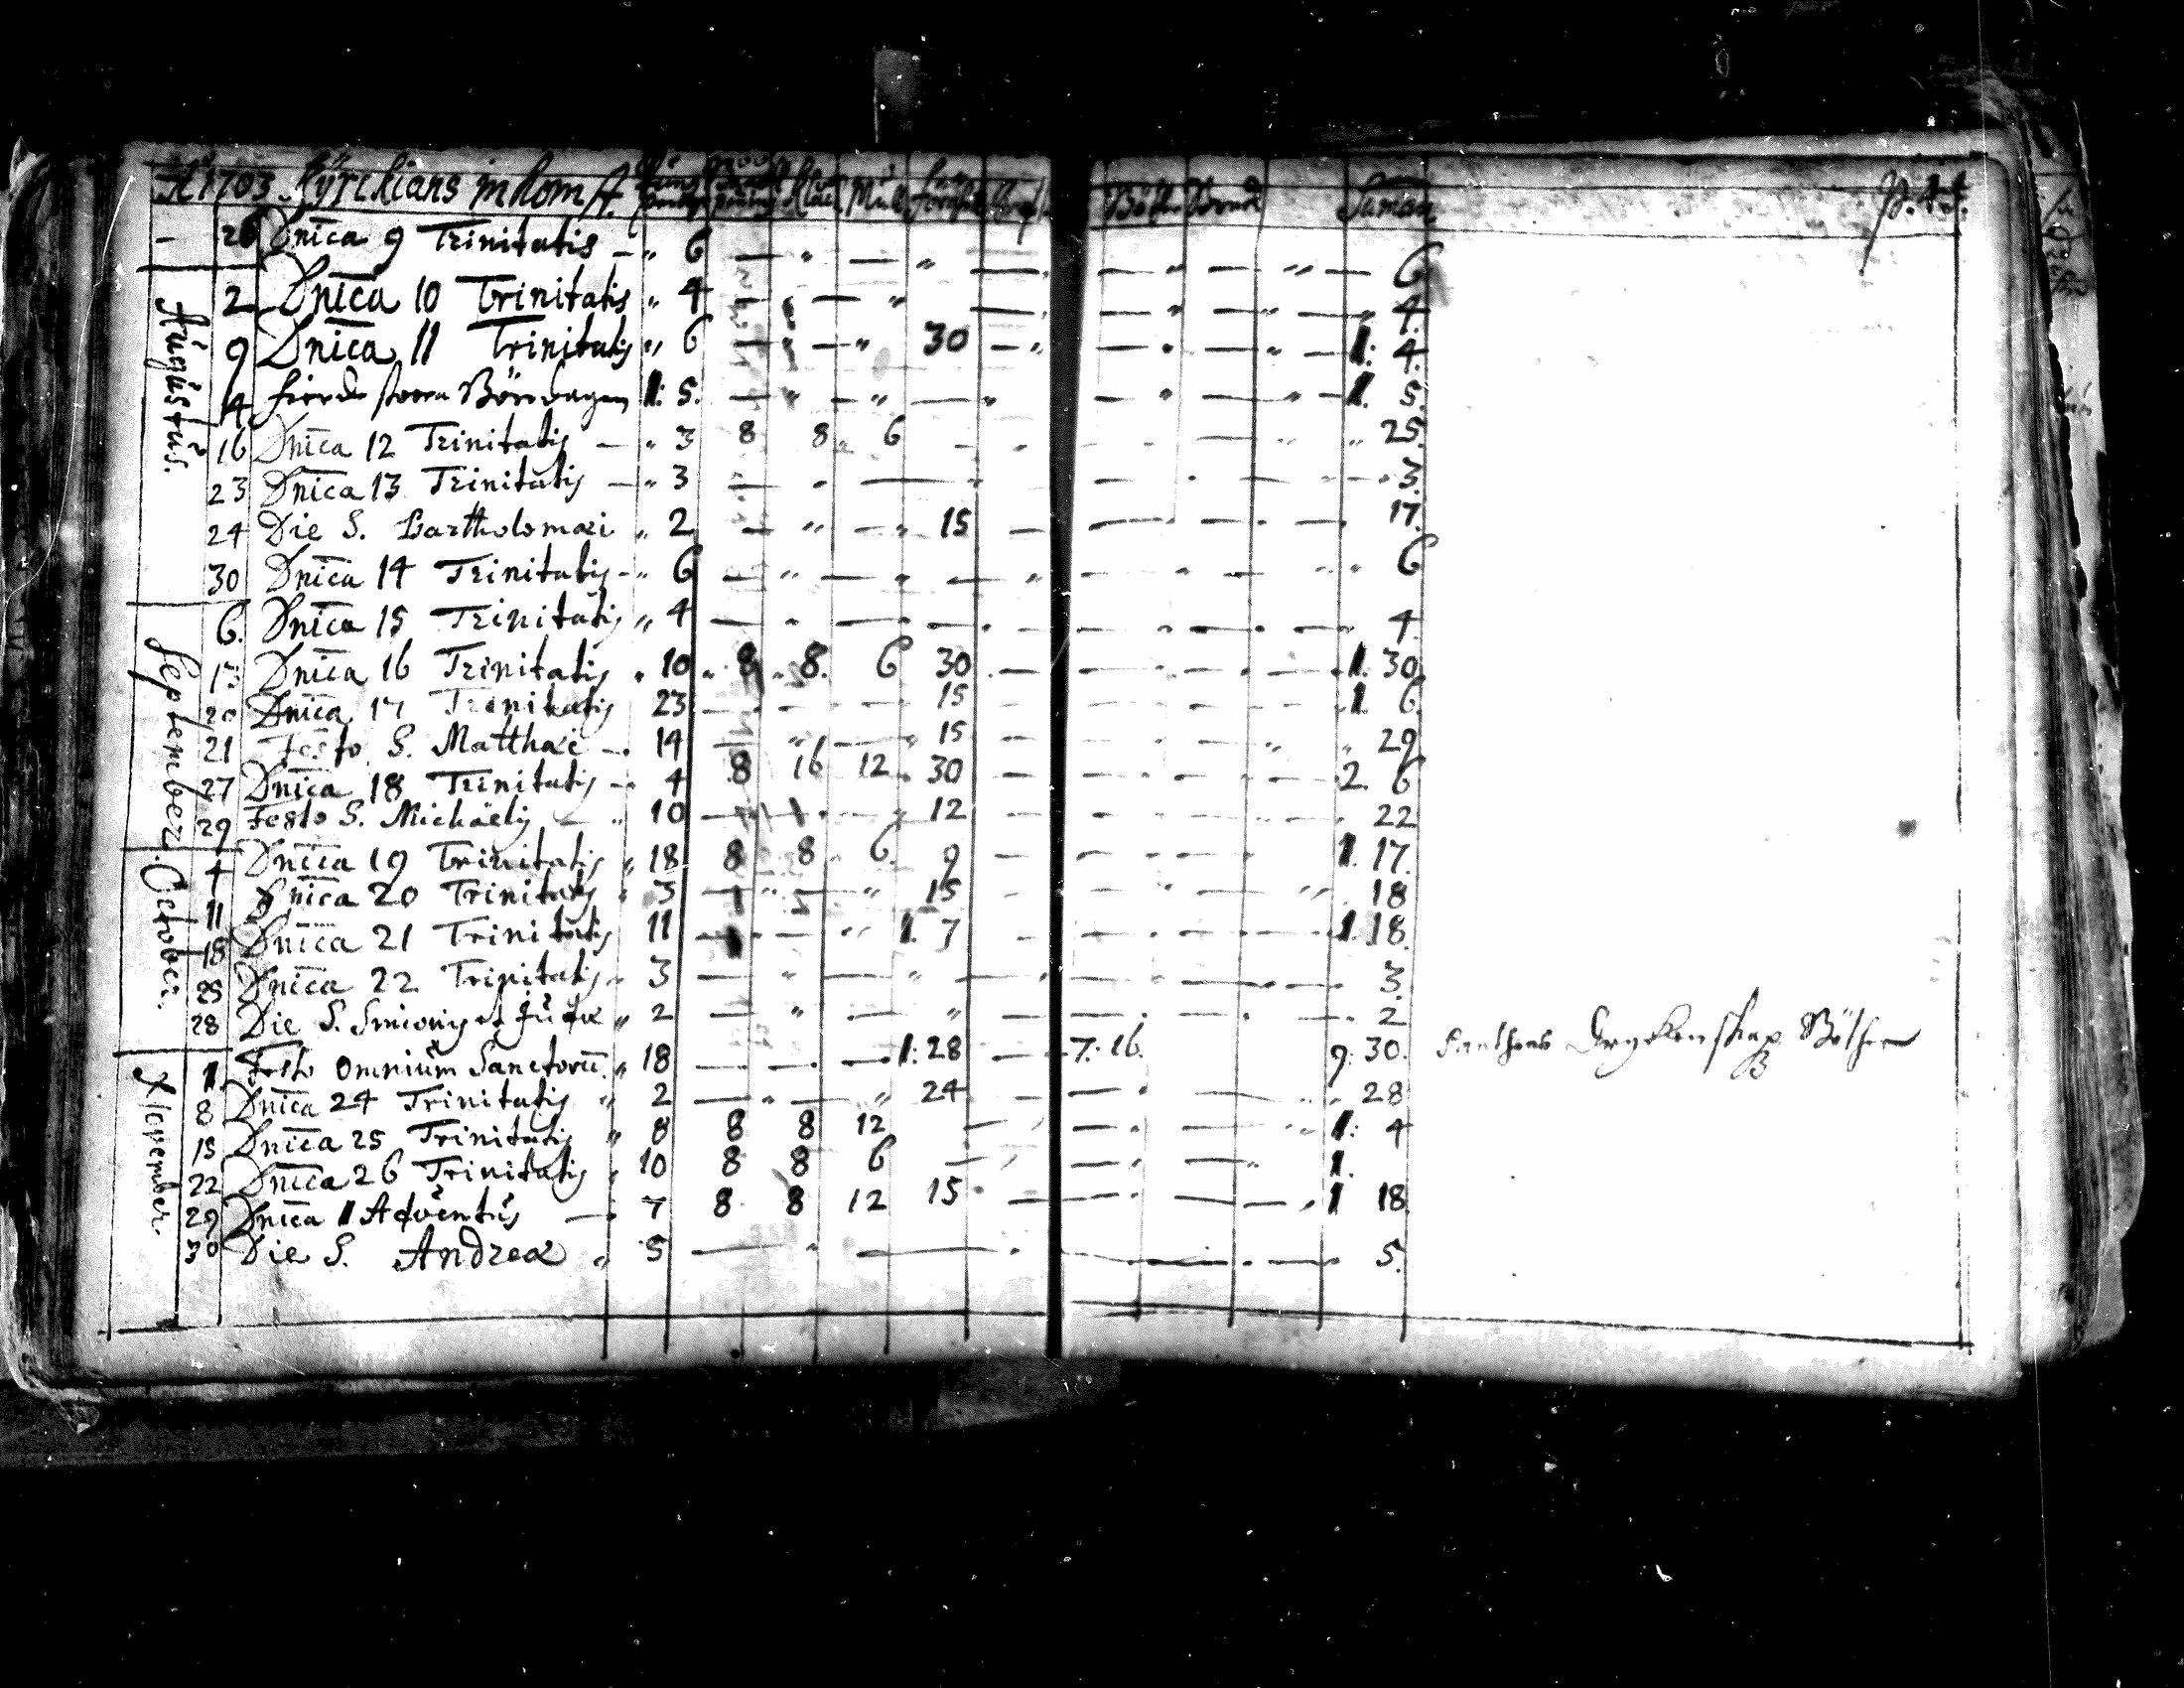 Aͦ 1703. Kÿrckians inkomst. Mull Böther Summa. P. 44.
– 26 Dn̄ica 9 Trinitatis – „ 6 — „ — „ — — „ — „ — 6
Augustus. 2 Dn̄ica 10 Trinitatis „ 4 — — „ — — „ — „ 4.
9 Dn̄ica 11 Trinitatis „ 6 — — „ 30 — „ — „ — „ — 1: 4.
14 fierde stoora Böndagen 1: 5. — „ — „ — „ — „ — „ — 1. 5.
16 Dn̄ica 12 Trinitatis — „ 3 8 8 „ 6 — „ 25.
23 Dn̄ica 13 Trinitatis — „ 3 — „ — „ — „ — „ 3.
24 Die S. Bartholomæi „ 2 — „ — „ 15 — — „ — „ — 17.
30 Dn̄ica 14 Trinitatis – „ 6 — „ — „ — „ — „ — „ 6
September. 6. Dn̄ica 15 Trinitatis „ 4 — „ — „ — „ — „ — „ — 4.
13 Dn̄ica 16 Trinitatis „ 10 „ 8 „ 8. 6 30 „ — — „ — „ — 1. 30.
20 Dn̄ica 17 Trinitatis 23 — „ — „ 15 — „ — „ — 1. 6.
21 Festo S. Matthæi — „ 14 — „ — „ 15 — „ — „ „ 29
27 Dn̄ica 18 Trinitatis – „ 4 8 16 12 „ 30 — — „ — „ — 2. 6
29 Festo S. Michaëlis — „ 10 — — „ 12 — — „ — „ — 22
October. 4 Dn̄ica 19 Trinitatis „ 18 8 8 „ 6. 9 — — „ — „ — 1. 17.
11 Dn̄ica 20 Trinitatis „ 3 — „ — „ 15 — „ — „ 18
18 Dn̄ica 21 Trinitatis 11 — „ — „ 1. 7 — — „ — „ — 1. 18.
25 Dn̄ica 22 Trinitatis „ 3 — „ — „ — „ — „ — 3.
28 Die S. Simonis et Judæ „ 2 — „ — „ — „ — „ — 2
November. 1. Festo Omnium Sanctorū. „ 18 — „ — 1: 28 — 7. 16. 9. 30.
8 Dn̄ica 24 Trinitatis „ 2 — „ — „ 24 — „ — „ 28
15 Dn̄ica 25 Trinitatis „ 8 8 8 12 — — „ — „ 1: 4
22 Dn̄ica 26 Trinitatis „ 10 8 8 6 — — „ — „ 1.
29 Dn̄ica 1 Adventus — 7 8 8 12 15 „ — — „ — — „ 1 18
30 Die S. Andreæ „ 5 — „ — „ — „ — „ — 5.